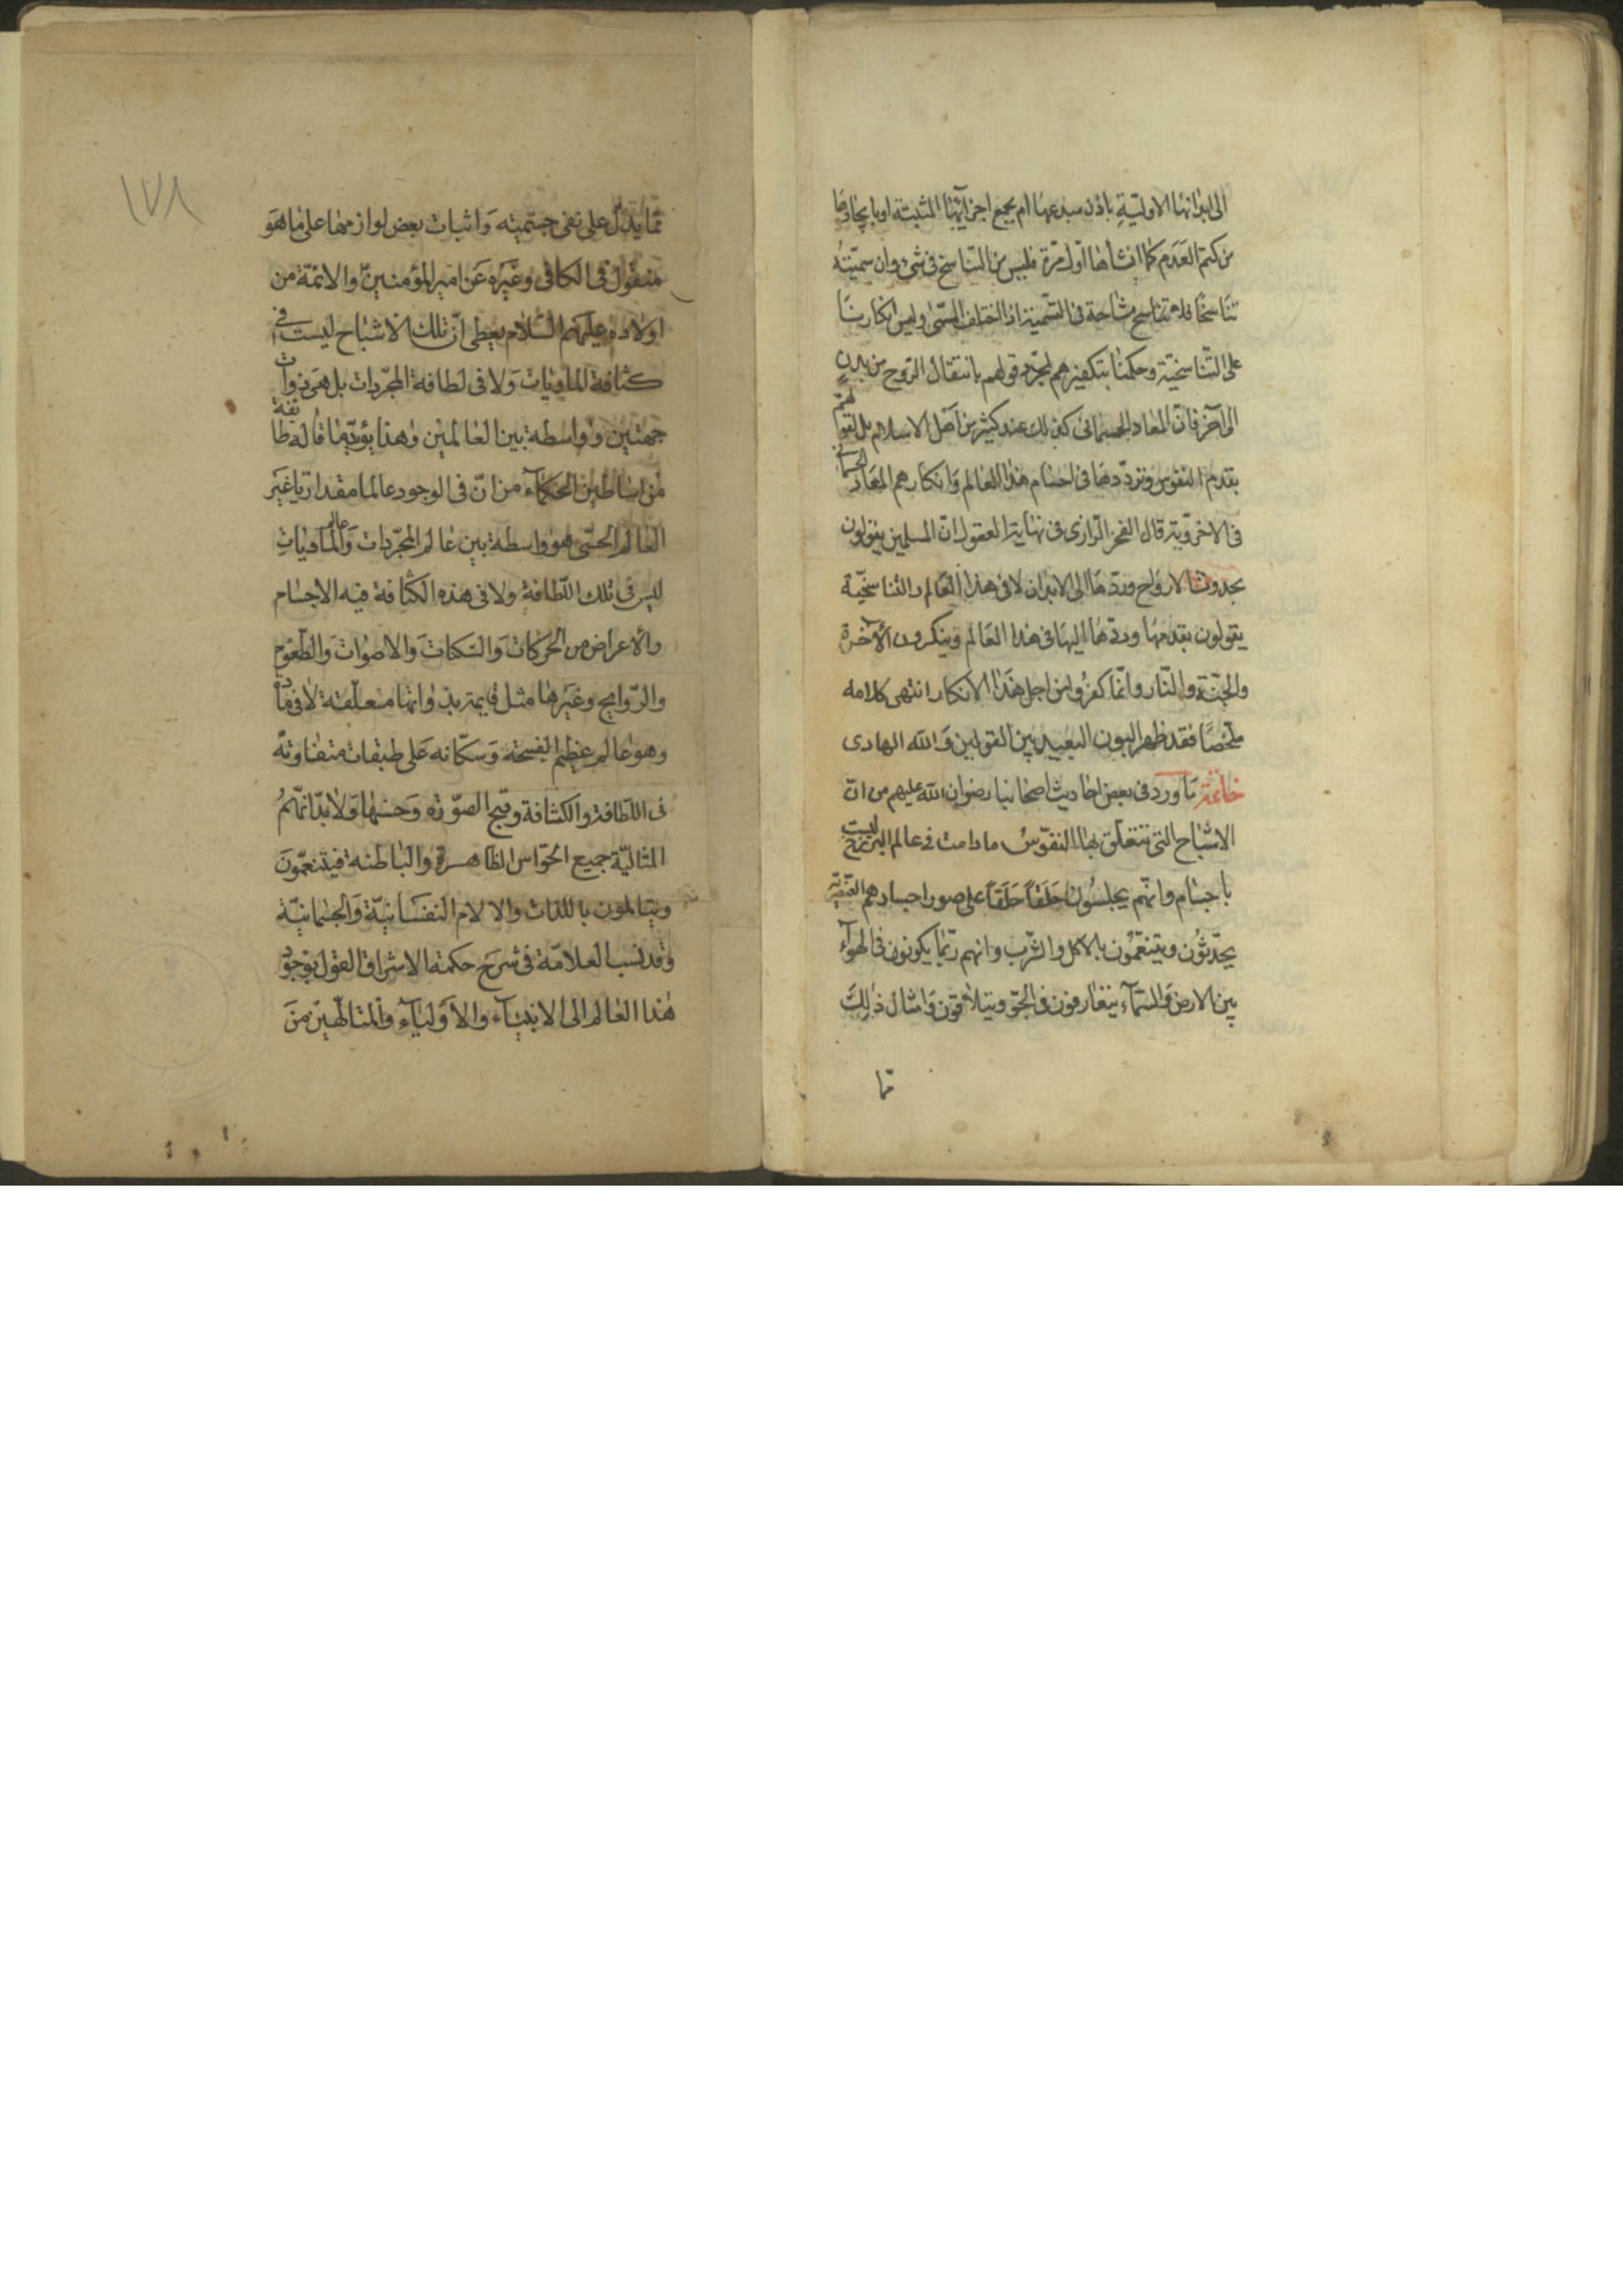 الى ابدانها الاولية باذن مبدعها ام بجمع اجزائها المثبتة او بايجادها
من كتم العدم كما انشأها اول مرة فليس من التناسخ فى شئ وان سميته
تناسخا فلا مشاحة فى التسمية اذ اختلف المسمى وليس انكارنا
على التناسخية وحكمنا بتكفيرهم لمجرد قولهم بانتقال الروح من بدن
الى آخر فان المعاد الجسمانى كذلك عند كثير من اهل الاسلام بل لقولهم
بقدم النفوس وترددها فى اجسام هذا العالم وانكارهم المعاد الجسمانى
فى الاخروية قال الفخر الرازى فى نهاية العقول ان المسلمين يقولون
بحدوث الارواح وردها الى الابدان لا فى هذا العالم والتناسخية
يقولون بقدمها وردها اليها فى هذا العالم وينكرون الآخرة
والجنة والنار وانما كفروا من اجل هذا الانكار انتهى كلامه
ملخصا فقد ظهر البون البعيد بين القولين والله الهادى
خاتمة ما ورد فى بعض احاديث اصحابنا رضوان الله عليهم من ان
الاشباح التى تتعلق بها النفوس ما دامت فى عالم البرزخ ليست
باجسام وانهم يجلسون حلقا حلقا على صور اجسادهم العنصرية
يحدثون ويتنعمون بالاكل والشرب وانهم ربما يكونون فى الهوآء
بين الارض والسمآء يتعارفون فى الجو ويتلاقون وامثال ذلك
مما
١٧٨
مما يدل على نفى جسميته واثبات بعض لوازمها على ما هو
منقول فى الكافى وغيره عن امير المؤمنين والائمة من
اولاده عليهم السلام يعطى ان تلك الاشباح ليست فى
كثافة الماديات ولا فى لطافة المجردات بل هى ذوات
جهتين وواسطة بين العالمين وهذا يؤيد ما قاله طائفة
من اساطين الحكمآء من ان فى الوجود عالما مقداريا غير
العالم الحسى هو واسطة بين عالم المجردات وعالم الماديات
ليس فى تلك اللطافة ولا فى هذه الكثافة فيه الاجسام
والاعراض من الحركات والسكنات والاصوات والطعوم
والروايح وغيرها مثل قايمة بذواتها معلقة لا فى مادة
وهو عالم عظيم الفسحة وسكانه على طبقات متفاوتة
فى اللطافة والكثافة وقبح الصورة وحسنها ولابدانهم
المثالية جميع الحواس الظاهرة والباطنة فيتنعمون
ويتالمون باللذات والالام النفسانية والجسمانية
وقد نسب العلامة فى شرح حكمة الاشراق القول بوجود
هذا العالم الى الانبيآء والاوليآء والمتالهين من